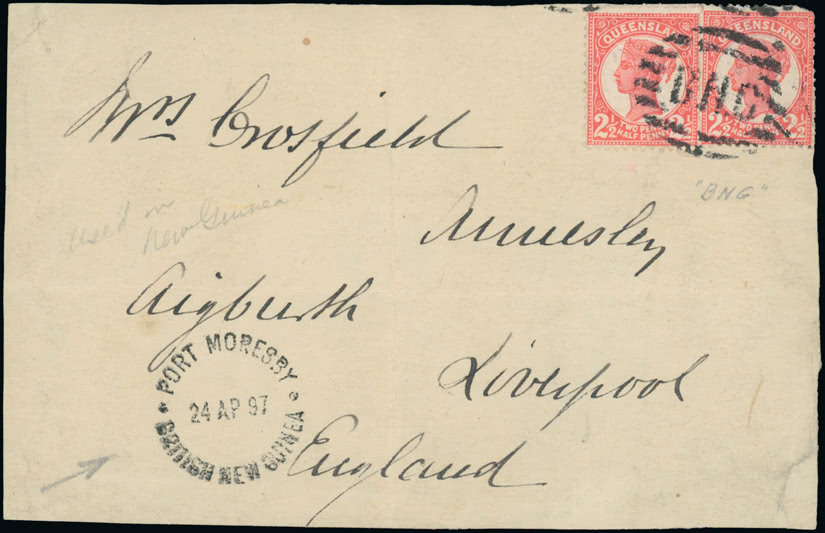 QUEENSLAND QUEENSLAND
BNG
2½ TWO PENCE HALF PENNY 2½ 2½ TWO PENCE HALF PENNY 2½
Mrs Crosfield
"BNG"
Used in
New Guinea
Annesley
Aigburth
PORT MORESBY
24 AP 97
BRITISH NEW GUINEA
Liverpool
England